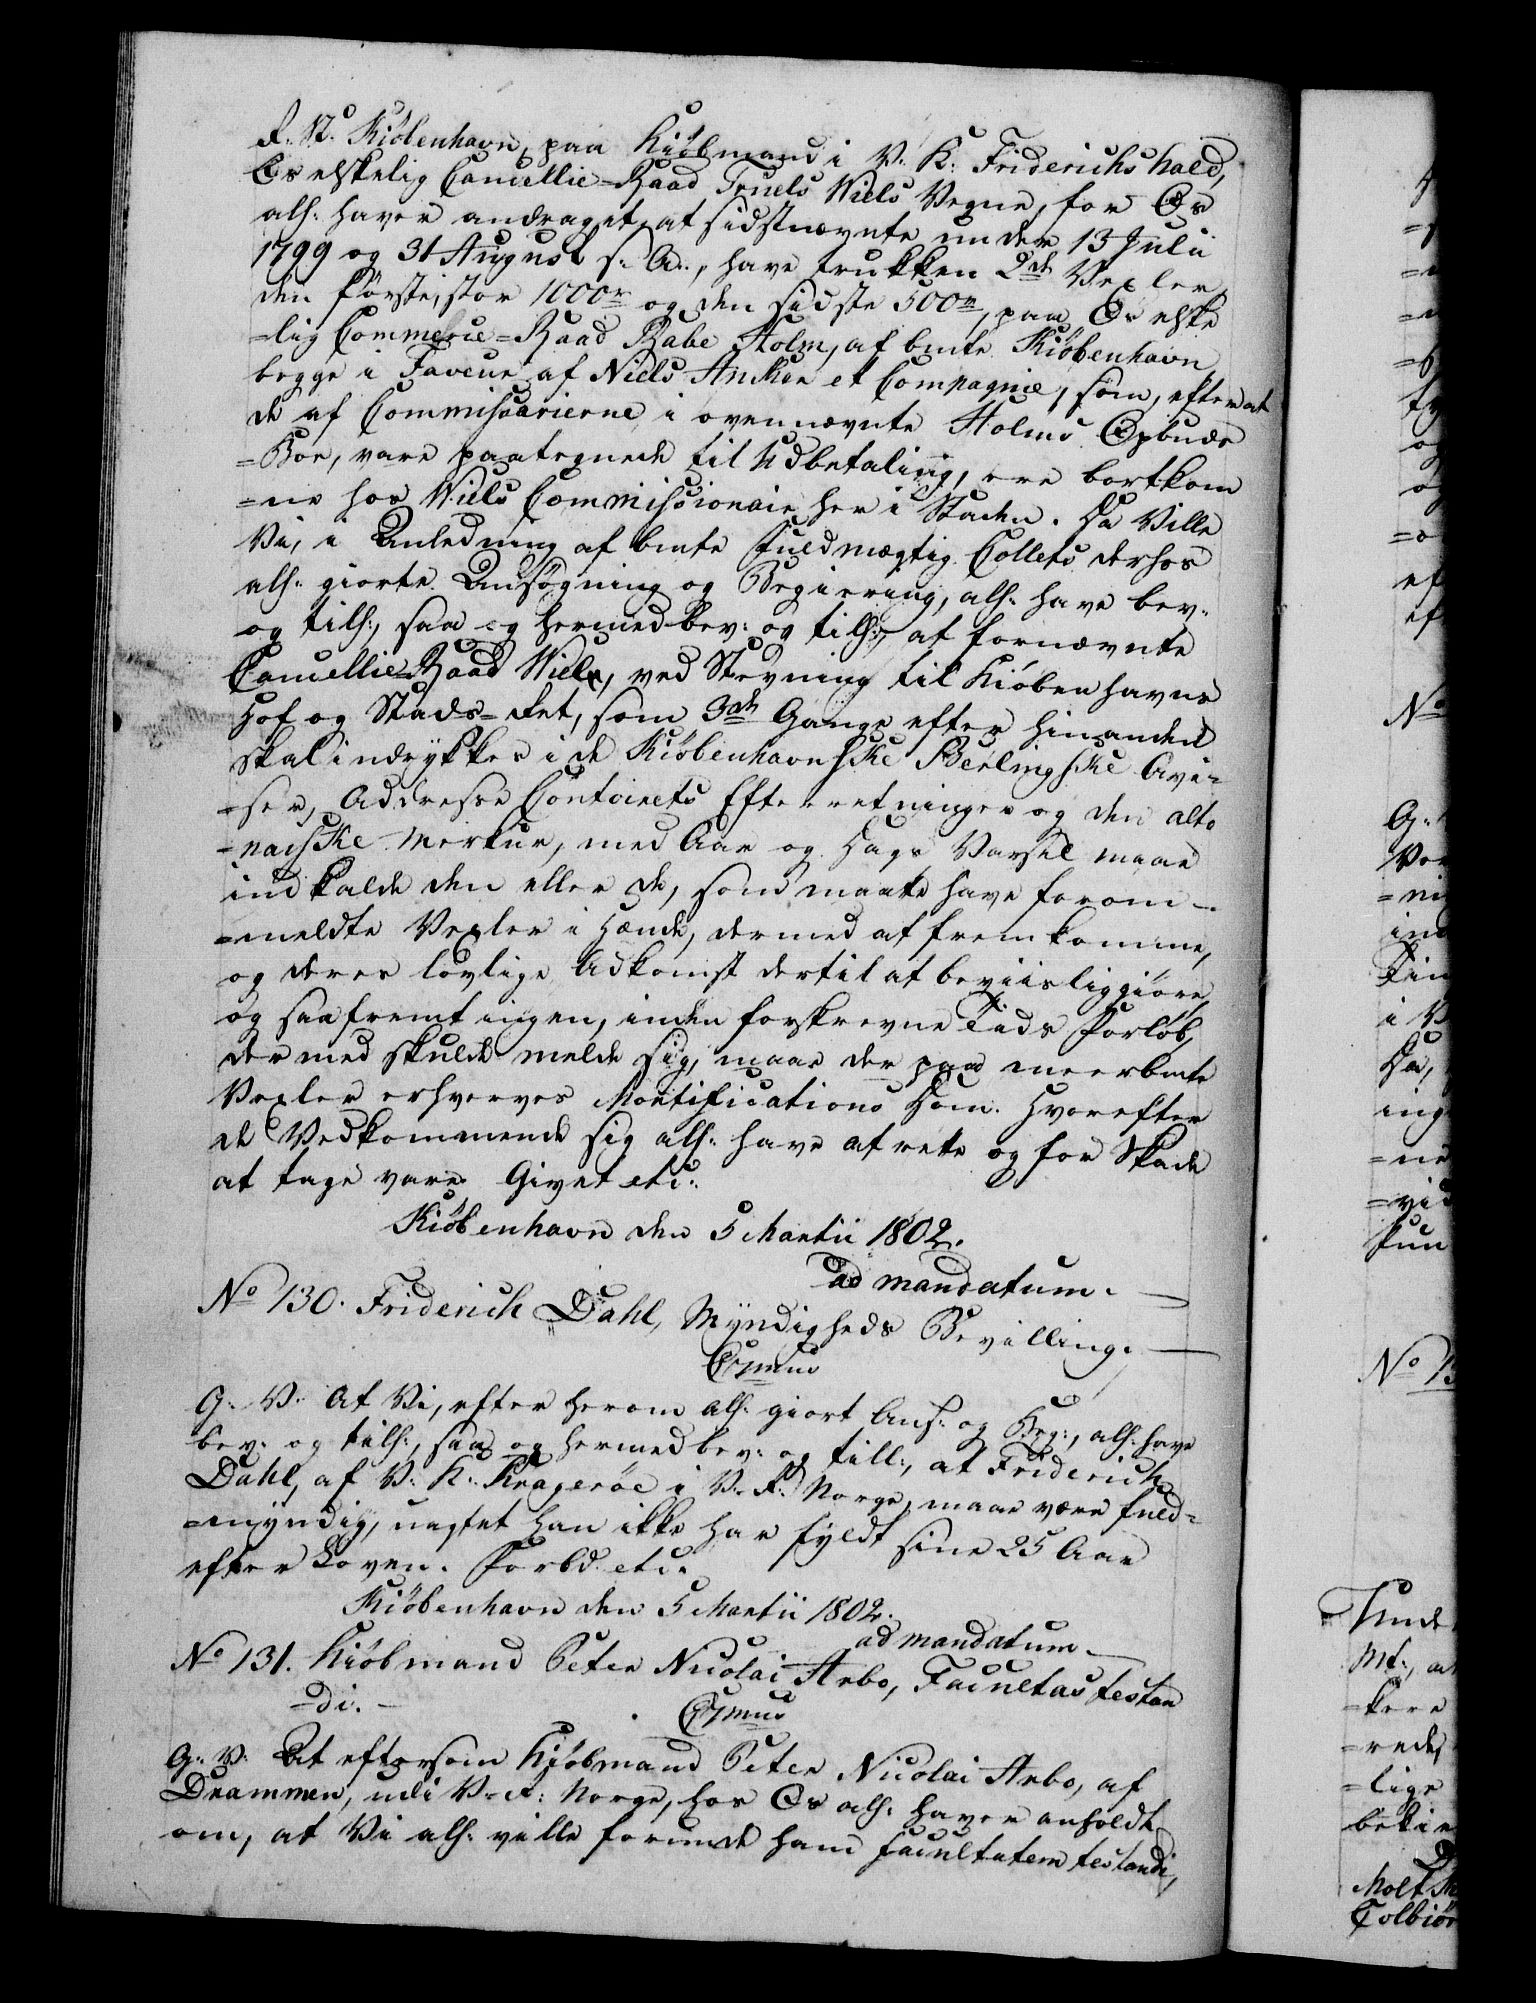 R. St. Kiöbenhavn, paa Kiöbmand i V. K. Friderichshald,
Os elskelig Cancellie-Raad Truels Wiels Vegne, for Os
alh: haver andraget, at sidstnævnte under 13 Julii
1799 og 31 August s. A., have trukken 2de Vexler,
den förste, stor 1000 r og den sidste 500 r, paa Os elske
=lig Commerce=Raad Rabe Holm, af bmte Kiöbenhavn,
begge i Faveur af Niels Anker et Compagnie, som, efterat
de af Commissarierne i ovennævnte Holms Opbuds
=Boe, vare paategnede til Udbetaling, ere bortkom
=ne hos Wiels Commissionair her i Staden. Da Ville
Vi, i Anledning af bmte Fuldmægtig Collets derhos
alh: giorte Ansøgning og Begiering, alh: have bev:
og tilh:, saa og hermed bev: og tilh:, at fornævnte
Cancellie=Raad Wiels, ved Stevning til Kiöbenhavns
Hof og Stads=Ret, som 3de Gange efter hinanden
skal indrykkes i de Kiöbenhavnske Berlingske Avi=
=ser, Addresse Contoirets Efterretninger og den alto
=naiske Merkur, med Aar og Dags Varsel maae
indkalde den eller de, som maatte have forom-
=meldte Vexler i Hænde, dermed at fremkomme,
og deres lovlige Adkomst dertil at beviisliggiöre,
og saafremt ingen, inden forskrevne Tids Forløb,
dermed skulde melde sig, maae der paa meerbmte
Vexler erhverves Mortifications Dom. Hvorefter
de Vedkommende sig alh: have at rette og for Skade
at tage vare. Givet etc:
Kiöbenhavn den 5 Martii 1802.
ad mandatum.
No 130. Friderich Dahl, Myndigheds Bevilling.
G. V. At Vi, efter herom alh: giort Ans: og Beg:, alh: have
bev: og tilh:, saa og hermed bev: og till:, at Friderich
Dahl, af V. K. Krageröe i V. R. Norge, maae være fuld=
=myndig, uagtet han ikke har fyldt sine 25 Aar
efter Loven. Forbd. etc.
Kiöbenhavn den 5 Martii 1802.
ad mandatum.
No 131. Kiöbmand Peter Nicolai Arbo, Facultas testan
=di.
G. V. At eftersom Kiöbmand Peter Nicolai Arbo, af
Drammen, udi V. R. Norge, hos Os alh: haver anholdt
om, at Vi alh: ville forunde ham facultatem testandi,